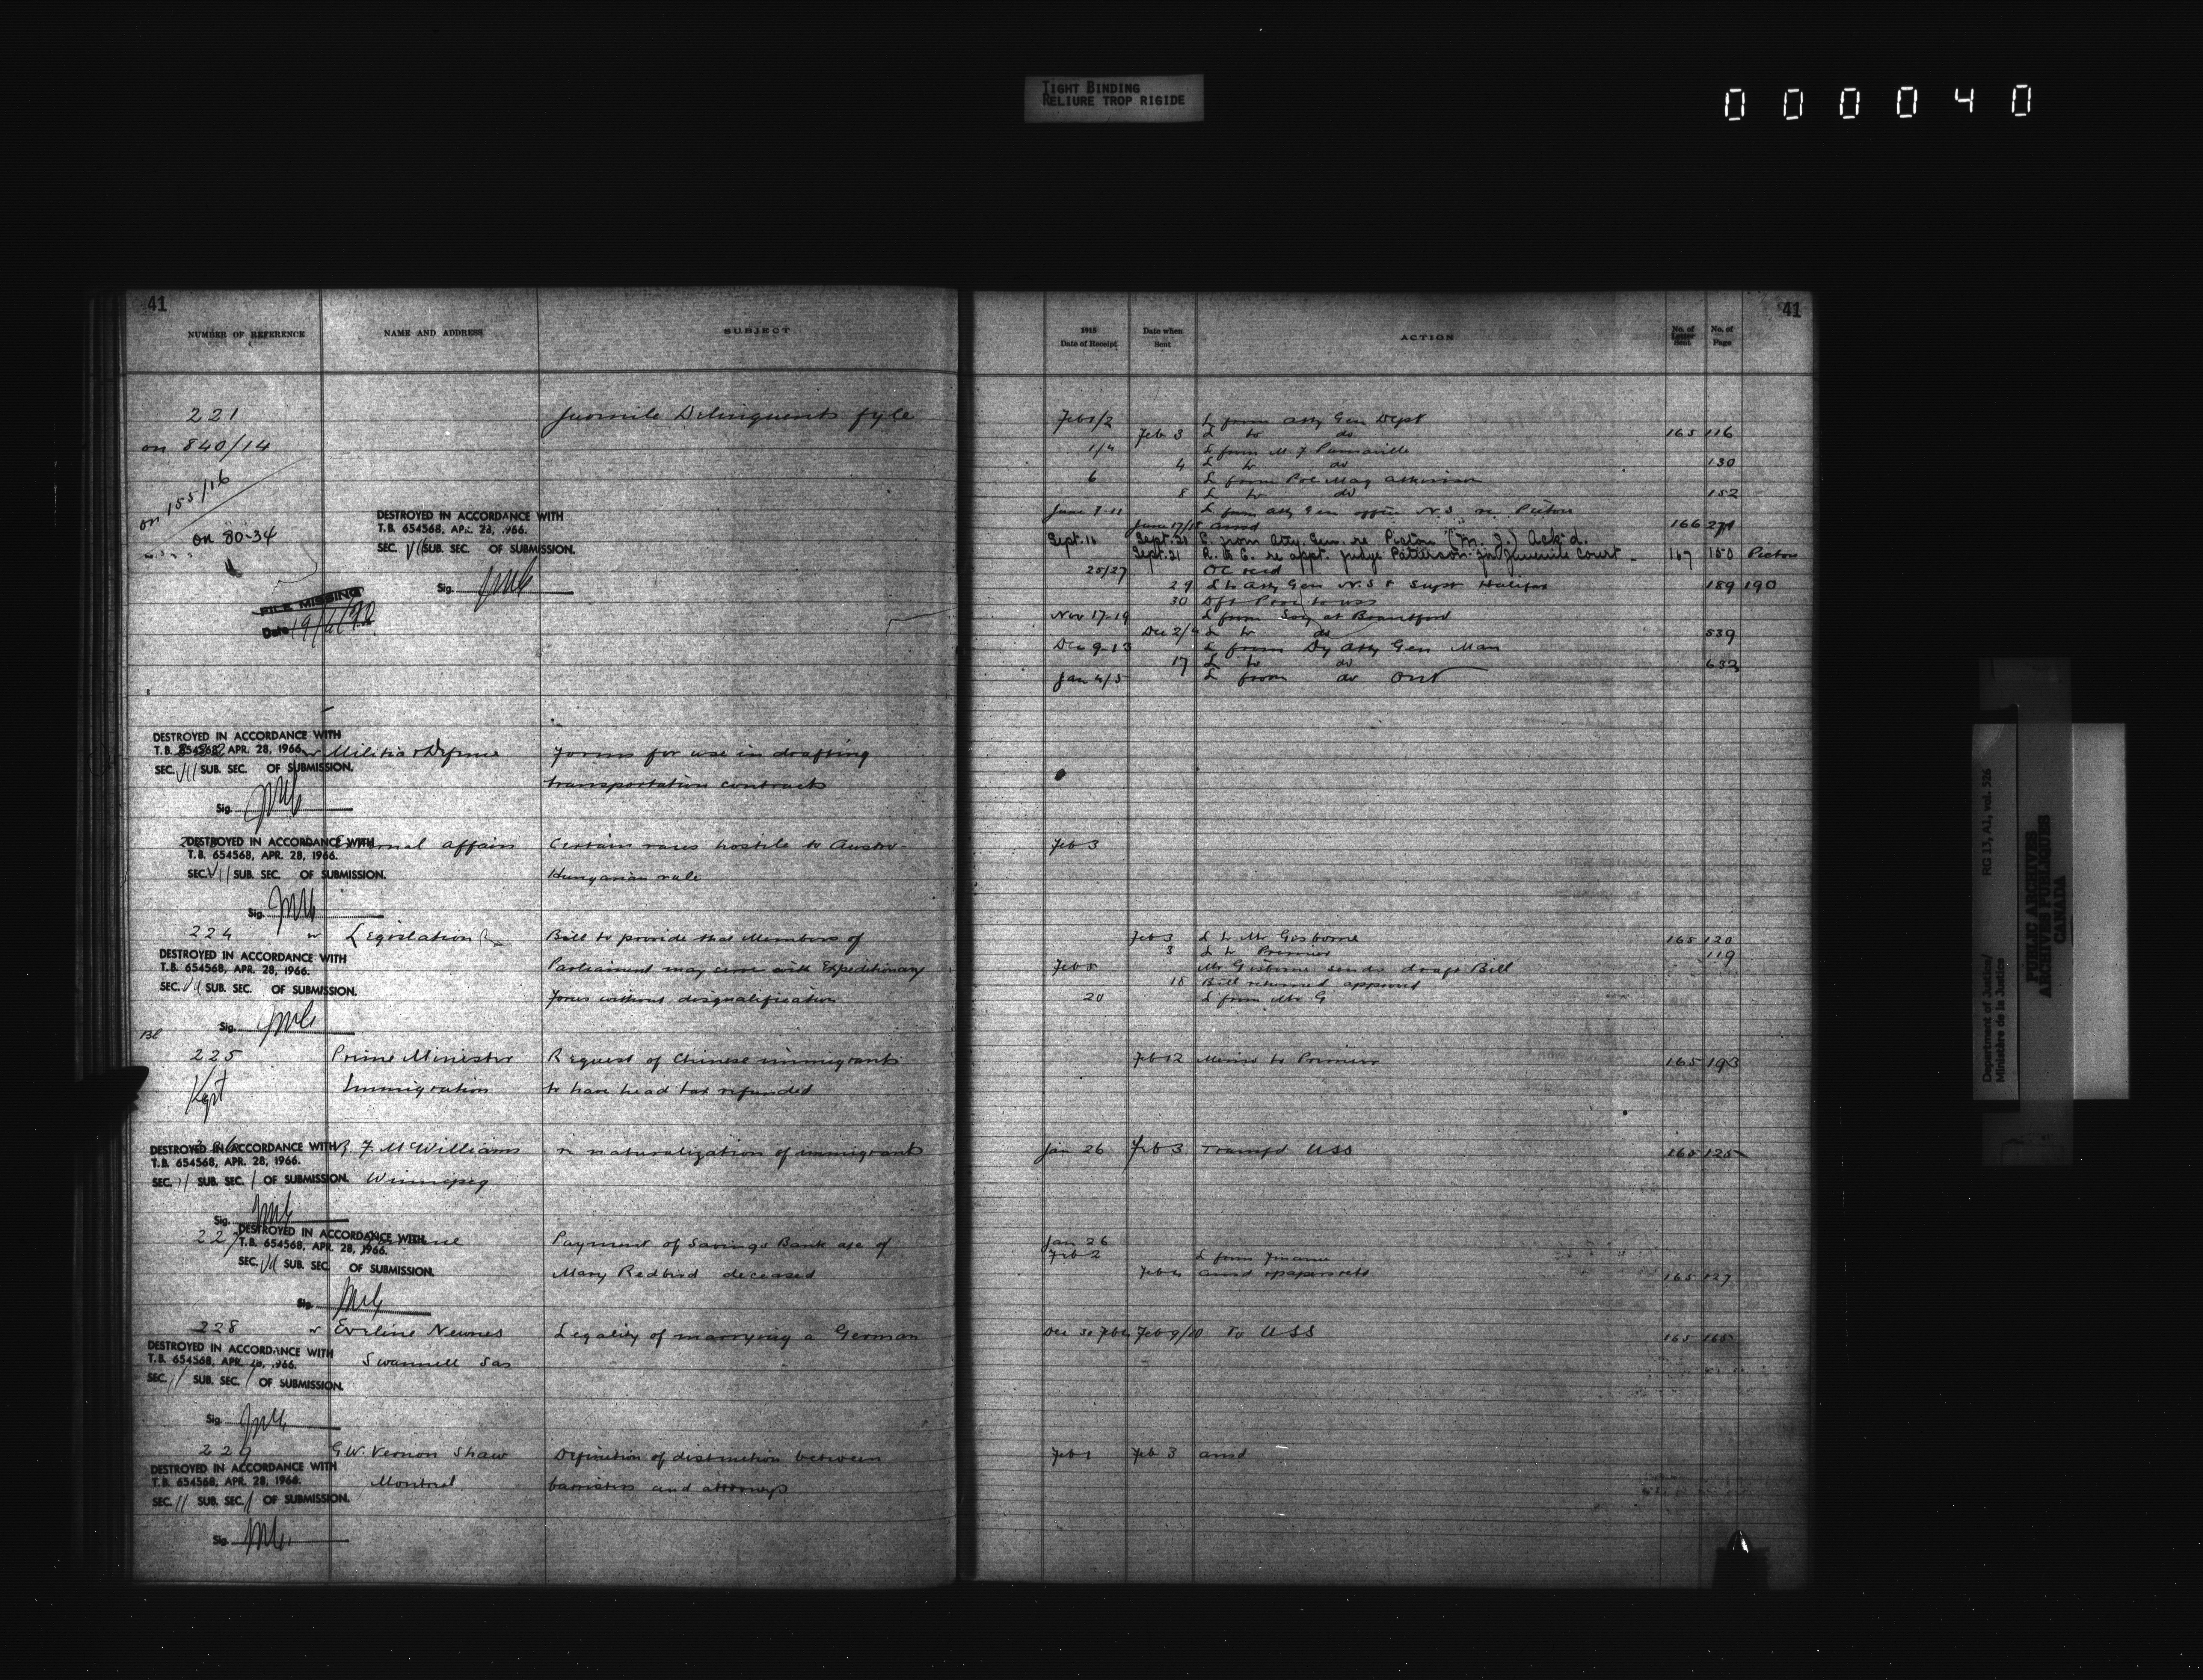 TIGHT BINDING
RELIURE TROP RIGIDE
000040
41
NUMBER OF REFERENCE NAME AND ADDRESS SUBJECT
221 Juvenile Delinquents fyle
on 840/14
on 155/16
on 80-34
DESTROYED IN ACCORDANCE WITH
T.B. 654568, APR. 28, 1966.
SEC. VII SUB. SEC. OF SUBMISSION.
Sig.
FILE MISSING
Date
DESTROYED IN ACCORDANCE WITH
T.B. 654568, APR. 28, 1966.
Militia & Defense Forms for use in drafting
SEC. VII SUB. SEC. OF SUBMISSION.
transportation contracts
Sig.
DESTROYED IN ACCORDANCE WITH
External affairs Certain races hostile to Austro-
T.B. 654568, APR. 28, 1966.
SEC. VII SUB. SEC. OF SUBMISSION.
Hungarian rule
Sig.
224 Legislation Bill to provide that Members of
DESTROYED IN ACCORDANCE WITH
T.B. 654568, APR. 28, 1966.
Parliament may serve with Expeditionary
SEC. VII SUB. SEC. OF SUBMISSION.
Forces without disqualification
Sig.
225 Prime Minister Request of Chinese immigrants
Kept Immigration to have head tax refunded
DESTROYED IN ACCORDANCE WITH
R. F. McWilliams re naturalization of immigrants
T.B. 654568, APR. 28, 1966.
SEC. 11 SUB. SEC. 1 OF SUBMISSION.
Winnipeg
Sig.
DESTROYED IN ACCORDANCE WITH
227 Finance Payment of Savings Bank a/c of
T.B. 654568, APR. 28, 1966.
SEC. VII SUB. SEC. OF SUBMISSION.
Mary Redbird deceased
Sig.
228 Eveline Newnes Legality of marrying a German
DESTROYED IN ACCORDANCE WITH
T.B. 654568, APR. 28, 1966.
Swannell Sas
SEC. 11 SUB. SEC. 1 OF SUBMISSION.
Sig.
229 G.W. Vernon Shaw Definition of distinction between
DESTROYED IN ACCORDANCE WITH
T.B. 654568, APR. 28, 1966.
Montreal barristers and attorneys
SEC. 11 SUB. SEC. 1 OF SUBMISSION.
Sig.
41
1915 Date of Receipt. Date when Sent ACTION No. of Letter Sent No. of Page
Feb 1/2 L from Atty Gen Dept
Feb 3 L to do 165 116
1/4 L from M. J.
4 L to do 130
6 L from Pol Mag Atkinson
8 L to do 152
June 7-11 L from Atty Gen office N.S. re Pictou
June 17/18 ansd 166 271
Sept. 16 Sept. 21 C. from Atty. Gen. re Pictou (M. J.) Ack'd.
Sept. 21 R. to C. re appt. judge Patterson for Juvenile Court 167 150 Pictou
25/27 OC recd
29 L to Atty Gen N.S & Supt Halifax 189 190
30
Nov 17-19 L from Soc at Brantford
Dec 2/4 L to do 539
Dec 9-13 L from Dy Atty Gen Man
17 L to do 632
Jan 4/5 L from do Ont
Feb 3
Feb 3 L to Mr Gisborne 165 120
3 L to Premier 119
Feb 5 Mr Gisborne sends draft Bill
18 Bill returned approved
20 L from Mr G
Feb 12 Memo to Premier 165 193
Jan 26 Feb 3 Transfd USS 165 125
Jan 26
Feb 2 L from Finance
Feb 4 ansd & papers retd 165 127
Dec 30 Feb 6 Feb 9/10 To USS 165 165
Feb 1 Feb 3 ansd
Department of Justice/
Ministère de la Justice
RG 13, A1, vol. 526
PUBLIC ARCHIVES
ARCHIVES PUBLIQUES
CANADA